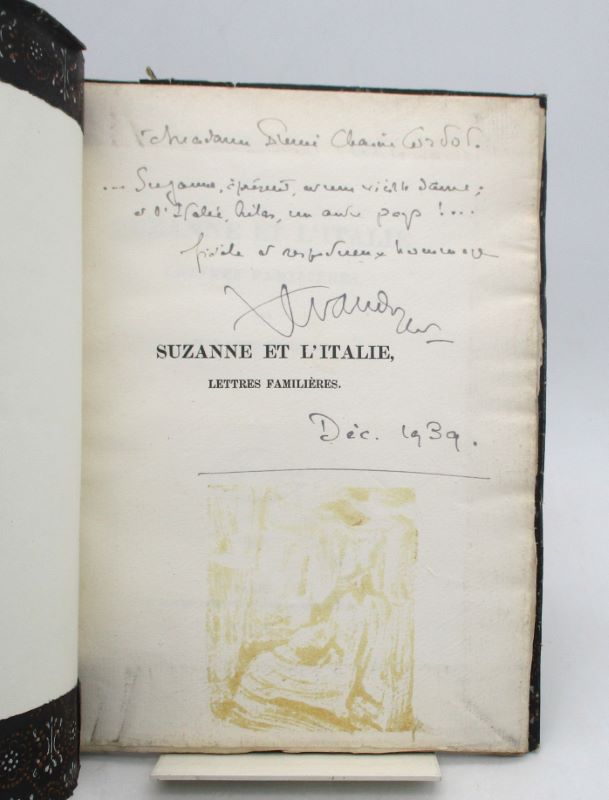 à Madame Pierre Chaine Cordot.
... Suzanne, à présent, est une vieille dame ;
et l'Italie, hélas, un autre pays !...
fidèle et respectueux hommage
SUZANNE ET L'ITALIE,
LETTRES FAMILIÈRES.
Déc. 1939.